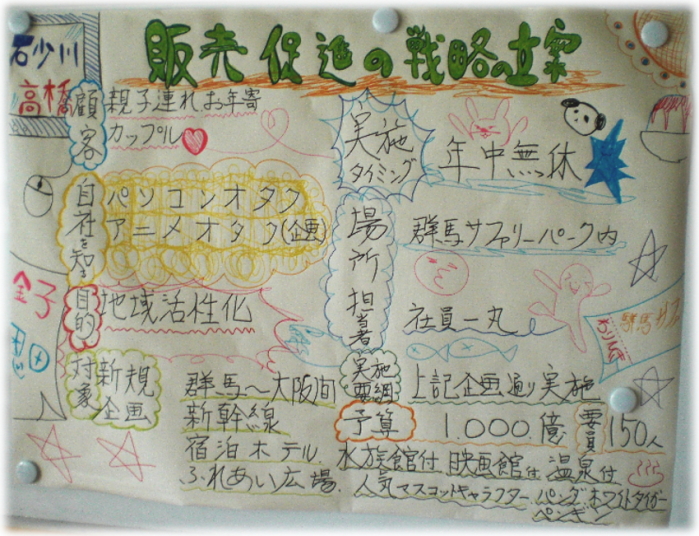 販売促進の戦略の立案
石少川
高橋
顧客
親子連れお年寄
カップル
自社を知る
パソコンオタク
アニメオタク(企画)
目的
地域活性化
金子
対象
新規
企画
群馬〜大阪間
新幹線
宿泊ホテル
ふれあい広場
実施
タイミング
年中無休
場所
群馬サファリーパーク内
担当者
社員一丸
実施要綱
上記企画通り実施
予算
1.000.億
要員
150人
水族館付 映画館付 温泉付
人気マスコットキャラクター パンダ ホワイトタイガー
ペンギン